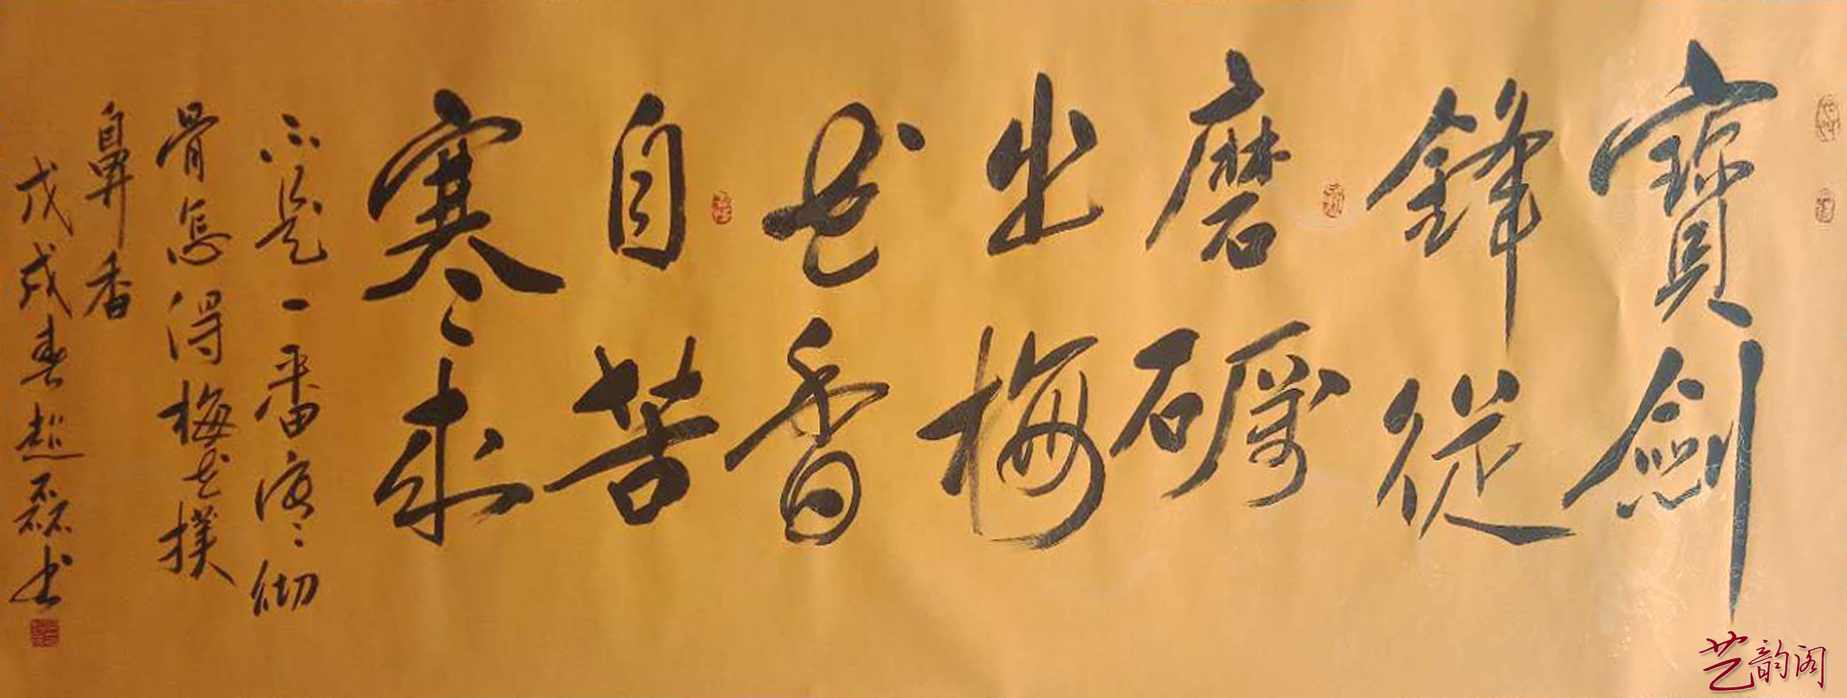 寶劍
鋒從
磨礪
出梅
花香
自苦
寒來
不是一番寒彻
骨怎得梅花撲
鼻香
戊戌春超磊书
艺韵阁